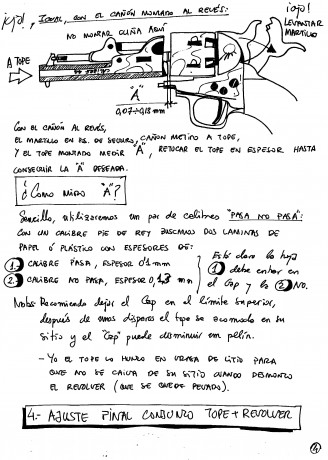 ¡ojo!, IGUAL, CON EL CAÑÓN MONTADO AL REVÉS:
NO MONTAR CUÑA AQUÍ
¡OJO!
LEVANTAR
MARTILLO
A TOPE
"A"
0,07÷0,13 mm
CON EL CAÑON AL REVÉS,
EL MARTILLO EN POS. DE SEGURO, CAÑON METIDO A TOPE,
Y EL TOPE MONTADO MEDIR "A", RETOCAR EL TOPE EN ESPESOR HASTA
CONSEGUIR LA "A" DESEADA.
¿Como mido "A"?
Sencillo, utilizaremos un par de calibres "PASA NO PASA":
CON UN CALIBRE PIE DE REY BUSCAMOS DOS LAMINAS DE
PAPEL Ó PLÁSTICO CON ESPESORES DE:
1. CALIBRE PASA, ESPESOR 0'1 mm
2. CALIBRE NO PASA, ESPESOR 0,13 mm
Está claro la hoja
1 debe entrar en
el Gap y la 2 NO.
Nota: Recomiendo dejar el Gap en el límite superior,
después de unos disparos el tope se acomoda en su
sitio y el "Gap" puede disminuir un pelín.
- YO EL TOPE LO UNTO EN GRASA DE LITIO PARA
QUE NO SE CAIGA DE SU SITIO CUANDO DESMONTO
EL REVOLVER (QUE SE QUEDE PEGADO).
4.- AJUSTE FINAL CONJUNTO TOPE + REVOLVER
4